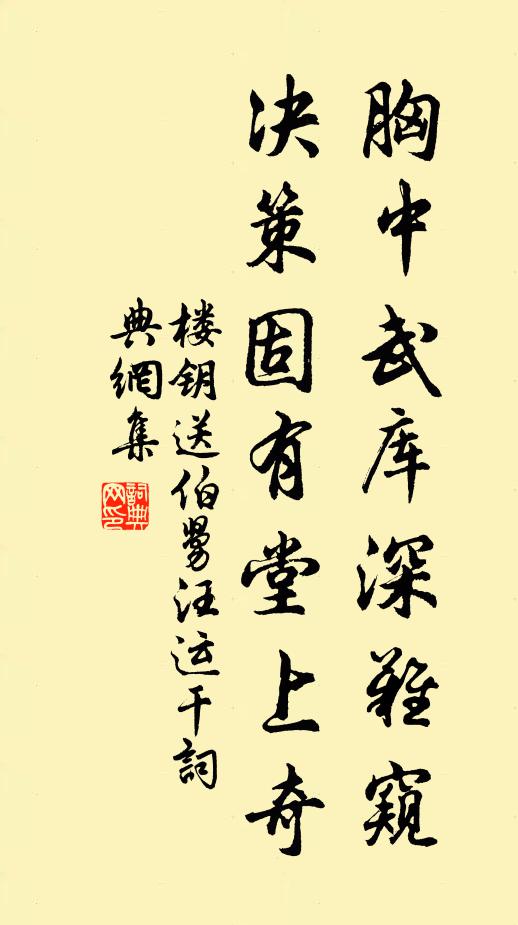 胸中武库深难窥
决策固有堂上奇
楼钥送伯舅汪运干詞
典網集
詞典
网印